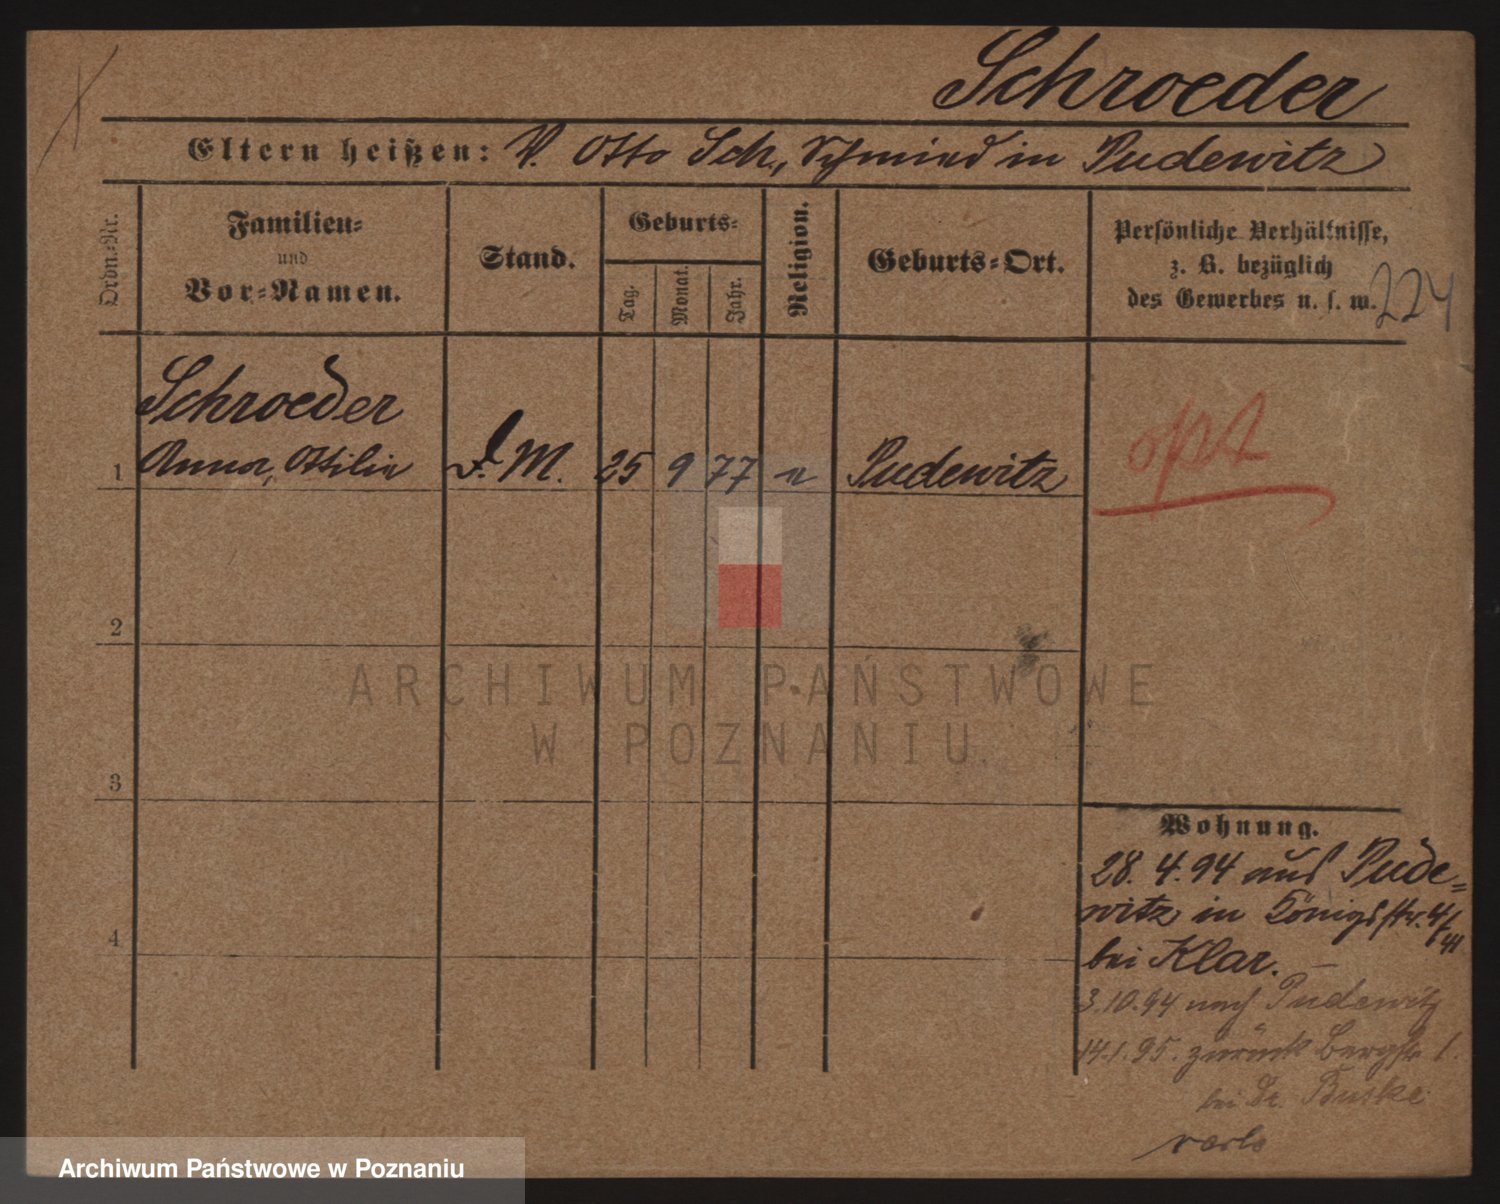 Schroeder
Eltern heißen: V. Otto Sch., Schmied in Pudewitz
Ordn.-Nr.
Familien-
und
Vor-Namen.
Stand.
Geburts-
Tag.
Monat.
Jahr.
Religion.
Geburts-Ort.
Persönliche Verhältnisse,
z. B. bezüglich
des Gewerbes u. s. w.
224
Schroeder
1 Anna, Ottilie D. M. 25 9 77 Pudewitz
2
3
4
Wohnung.
28. 4. 94 aus Pude-
witz in Königsstr. 4/
bei Klar.
3.10.94 nach Pudewitz
14.1.95. zurück Bergstr 1.
bei Dr. Buske
ARCHIWUM PAŃSTWOWE
W POZNANIU
Archiwum Państwowe w Poznaniu